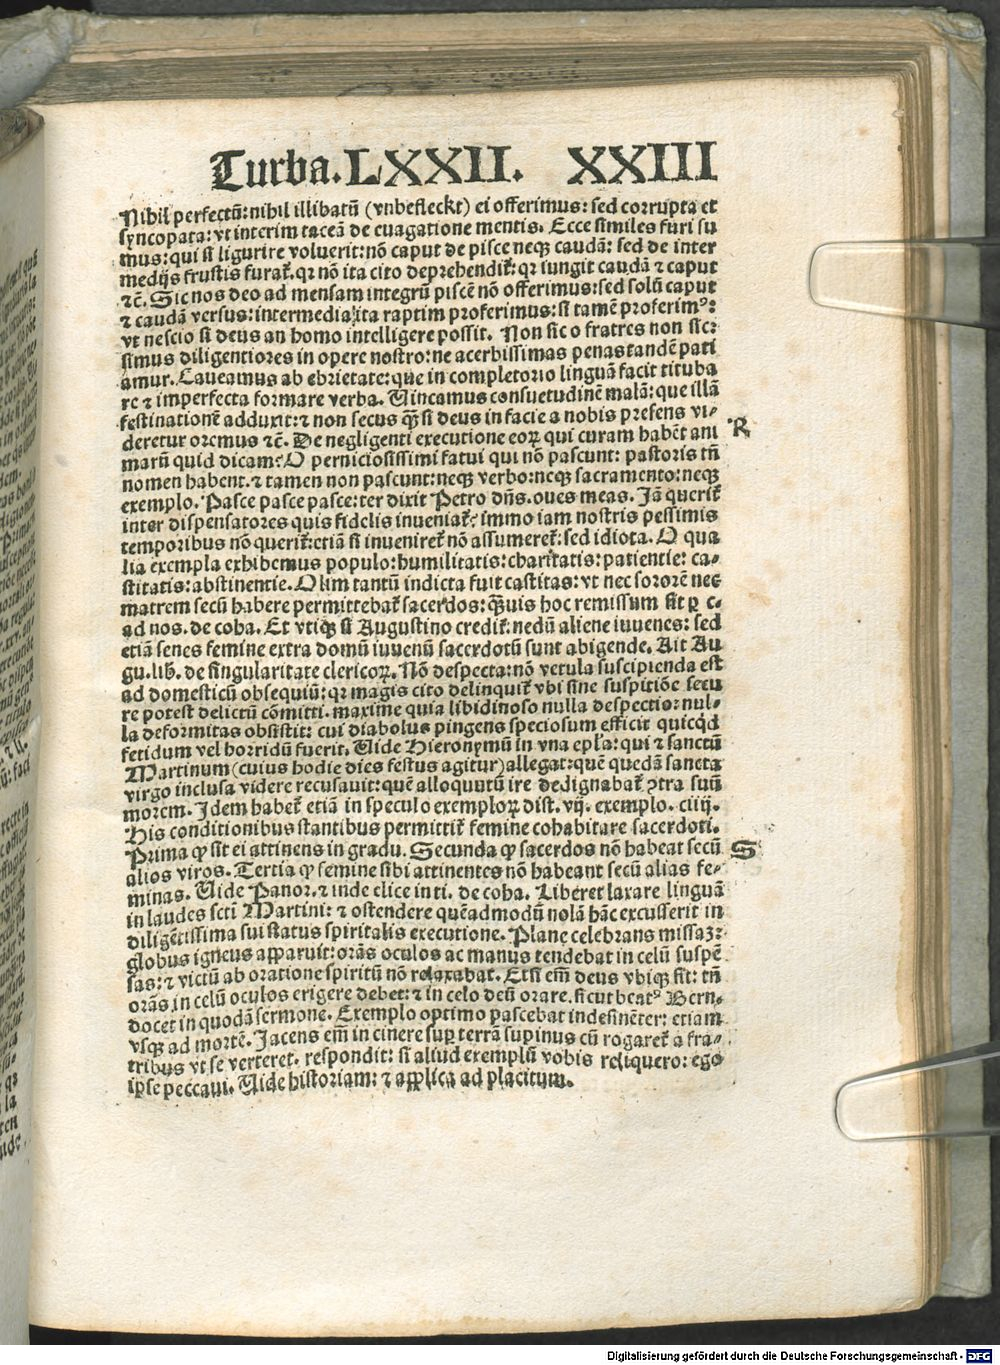 Turba.LXXII. XXIII
Nihil perfectū: nihil illibatū (vnbefleckt) ei offerimus: sed corrupta et
syncopata: vt interim taceā de euagatione mentis. Ecce similes furi su
mus: qui si ligurire voluerit: nō caput de pisce neqꝫ caudā: sed de inter
medijs frustis furat᷑. qꝛ nō ita cito deprehendit᷑: qꝛ iungit caudā ⁊ caput
⁊c̄. Sic nos deo ad mensam integrū piscē nō offerimus: sed solū caput
⁊ caudā versus: intermedia ita raptim proferimus: si tamē proferimꝰ:
vt nescio si deus an homo intelligere possit. Non sic o fratres non sic:
simus diligentiores in opere nostro: ne acerbissimas penas tandē pati
amur. Caueamus ab ebrietate: que in completorio linguā facit tituba
re ⁊ imperfecta formare verba. Uincamus consuetudinē malā: que illā
festinationē adduxit: ⁊ non secus qꝫ̄ si deus in facie a nobis presens vi-
deretur oremus ⁊c̄. De negligenti executione eoꝝ qui curam habēt ani
R
marū quid dicam: O perniciosissimi fatui qui nō pascunt: pastoris tn̄
nomen habent. ⁊ tamen non pascunt: neqꝫ verbo: neqꝫ sacramento: neqꝫ
exemplo. Pasce pasce pasce: ter dixit Petro dn̄s. oues meas. Jā querit᷑
inter dispensatores quis fidelis inueniat᷑: immo iam nostris pessimis
temporibus nō querit᷑: etiā si inueniret᷑ nō assumeret᷑: sed idiota. O qua
lia exempla exhibemus populo: humilitatis: charitatis: patientie: ca-
stitatis: abstinentie. Olim tantū indicta fuit castitas: vt nec sororē nec
matrem secū habere permittebat᷑ sacerdos: qꝫ̄uis hoc remissum sit ꝑ c.
ad nos. de coba. Et vtiqꝫ si Augustino credit᷑: nedū aliene iuuenes: sed
etiā senes femine extra domū iuuenū sacerdotū sunt abigende. Ait Au
gu. lib. de singularitate clericoꝝ. Nō despecta: nō vetula suscipienda est
ad domesticū obsequiū: qꝛ magis cito delinquit᷑ vbi sine suspitiōe secu
re potest delictū cōmitti. maxime quia libidinoso nulla despectio: nul-
la deformitas obsistit: cui diabolus pingens speciosum efficit quicqͥd
fetidum vel horridū fuerit. Uide Hieronymū in vna epl̄a: qui ⁊ sanctū
Martinum (cuius hodie dies festus agitur) allegat: quē quedā sancta
virgo inclusa videre recusauit: quē alloquutū ire dedignabat᷑ ꝯtra suū
morem. Idem habet᷑ etiā in speculo exemploꝝ dist. vij. exemplo. ciiij.
His conditionibus stantibus permittit᷑ femine cohabitare sacerdoti.
Prima ꝙ sit ei attinens in gradu. Secunda ꝙ sacerdos nō habeat secū
S
alios viros. Tertia ꝙ femine sibi attinentes nō habeant secū alias fe-
minas. Uide Panor. ⁊ inde elice in ti. de coba. Liberet laxare linguā
in laudes scti Martini: ⁊ ostendere quēadmodū nolā hāc excusserit in
diligētissima sui status spiritalis executione. Plane celebrans missaꝫ:
globus igneus apparuit: orās oculos ac manus tendebat in celū suspē
sas: ⁊ victū ab oratione spiritū nō relaxabat. Etsi em̄ deus vbiqꝫ sit: tn̄
orās in celū oculos erigere debet: ⁊ in celo deū orare. sicut beatꝰ Bern.
docet in quodā sermone. Exemplo optimo pascebat indesinēter: etiam
vsqꝫ ad mortē. Jacens em̄ in cinere suꝑ terrā supinus cū rogaret᷑ a fra-
tribus vt se verteret. respondit: si aliud exemplū vobis reliquero: ego
ipse peccaui. Uide historiam: ⁊ applica ad placitum.
Digitalisierung gefördert durch die Deutsche Forschungsgemeinschaft - DFG